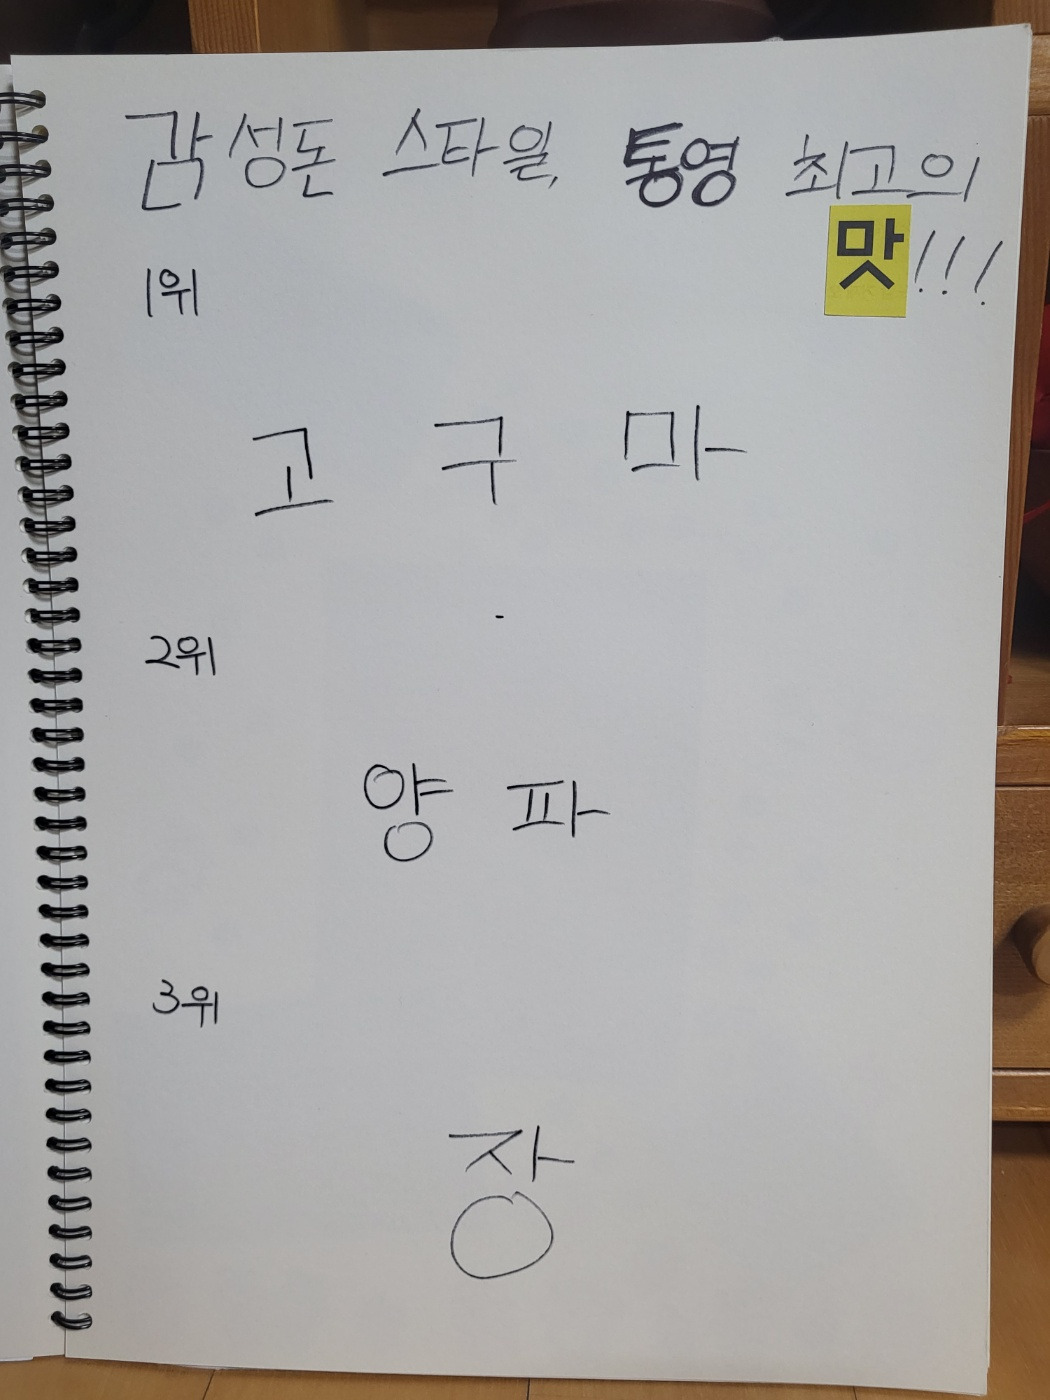 각성돈 스타일, 통영 최고의
맛!!!
1위
고 구 마
2위
양 파
3위
장